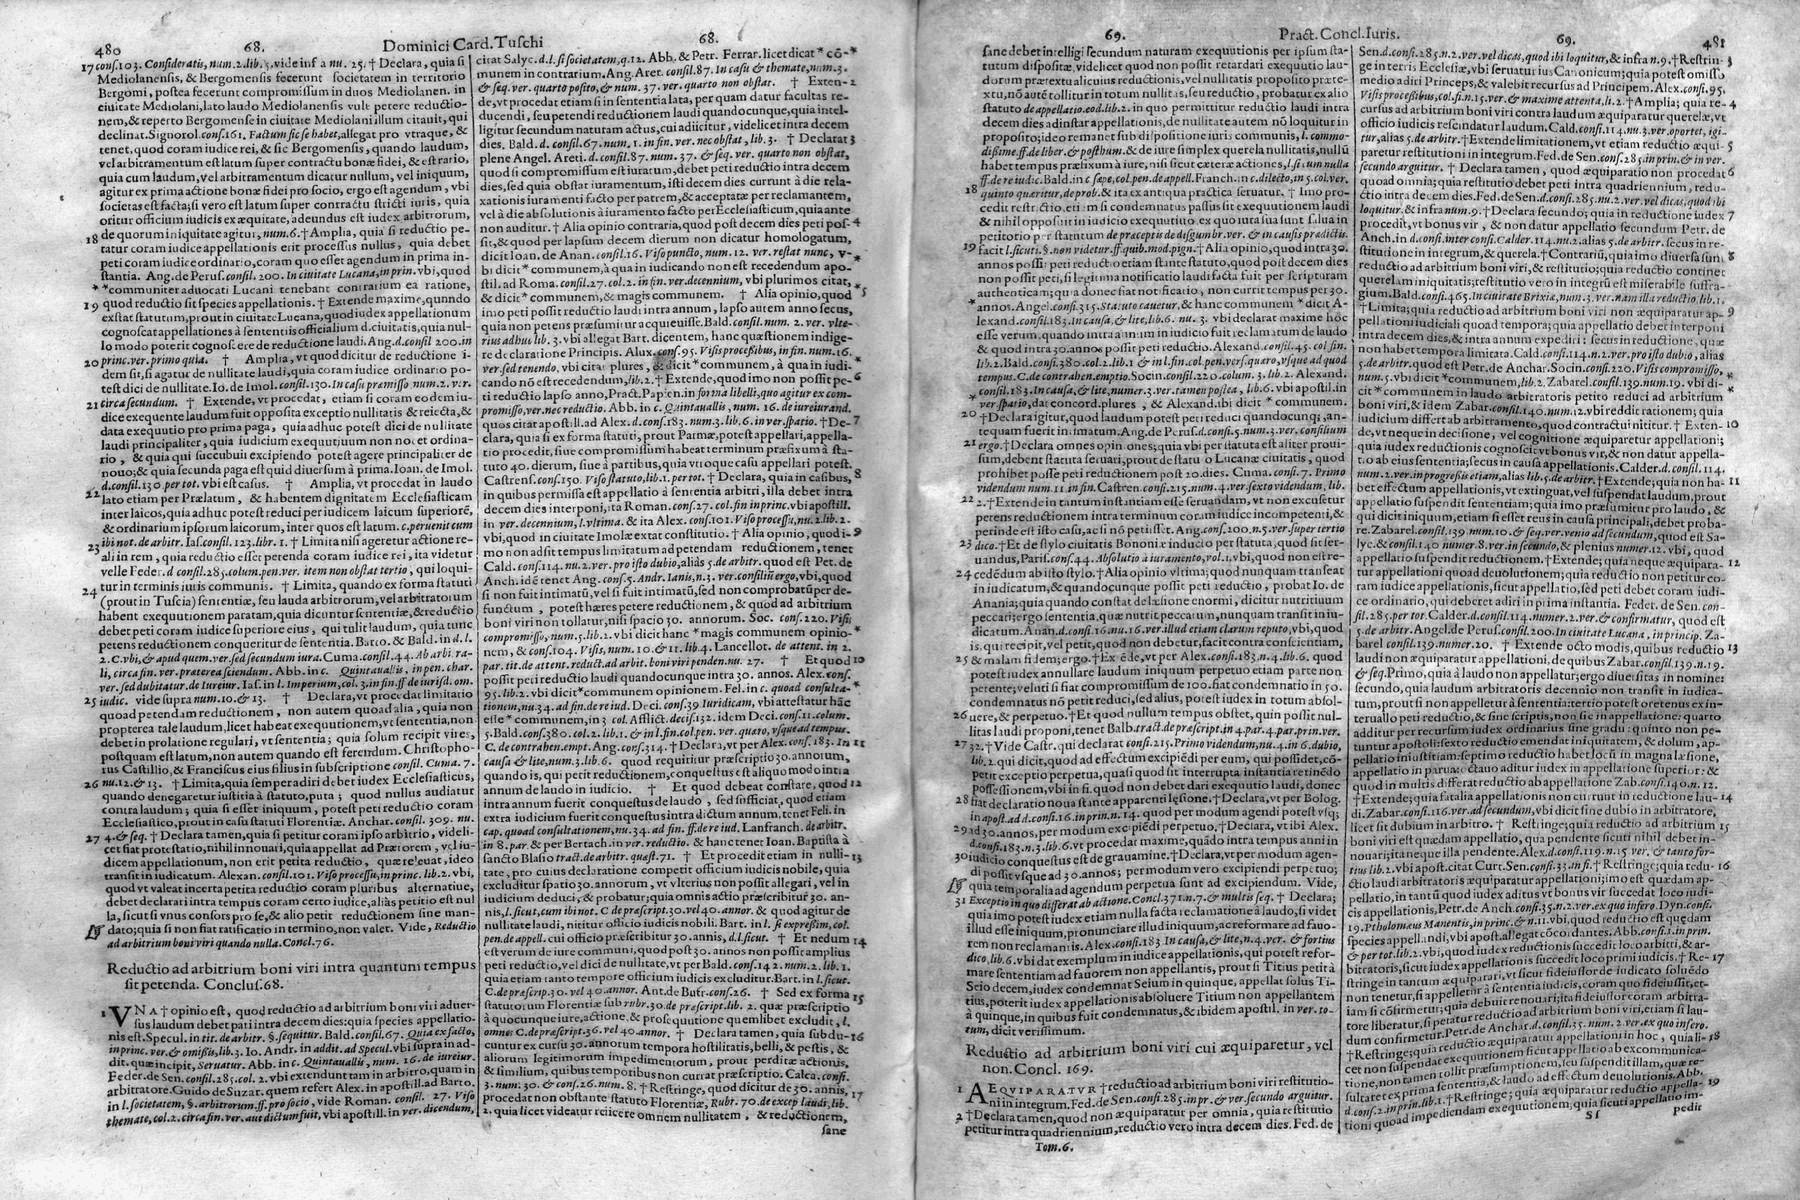 480 68. Dominici Card. Tuschi 68.
17 cons. 103. Consideratis, num. 2. lib. 3. vide infra nu. 25. † Declara, quia si
Mediolanensis, & Bergomensis fecerunt societatem in territorio
Bergomi, postea fecerunt compromissum in duos Mediolanen. in
ciuitate Mediolani, lato laudo Mediolanensis vult petere reductio-
nem, & reperto Bergomense in ciuitate Mediolani illum citauit, qui
declinat. Signorol. cons. 161. Factum sic se habet, allegat pro vtraque, &
tenet, quod coram iudice rei, & sic Bergomensis, quando laudum,
vel arbitramentum est latum super contractu bonæ fidei, & est rario,
quia cum laudum, vel arbitramentum dicatur nullum, vel iniquum,
agitur ex prima actione bonæ fidei pro socio, ergo est agendum, vbi
societas est facta; si vero est latum super contractu stricti iuris, quia
oritur officium iudicis ex æquitate, adeundus est iudex arbitrorum,
de quorum iniquitate agitur, num. 6. † Amplia, quia si reductio pe-
18 tatur coram iudice appellationis erit processus nullus, quia debet
peti coram iudice ordinario, coram quo esset agendum in prima in-
stantia. Ang. de Perus. consil. 200. In ciuitate Lucana, in prin. vbi, quod
* communiter aduocati Lucani tenebant contrarium ea ratione,
19 quod reductio sit species appellationis. † Extende maxime, quando
exstat statutum, prout in ciuitate Lucana, quod iudex appellationum
cognoscat appellationes à sententiis officialium d. ciuitatis, quia nul-
lo modo poterit cognoscere de reductione laudi. Ang. d. consil. 200. in
20 princ. ver. primo quia. † Amplia, vt quod dicitur de reductione i-
dem sit, si agatur de nullitate laudi, quia coram iudice ordinario po-
test dici de nullitate. Io. de Imol. consil. 130. In casu præmisso num. 2. ver.
21 circa secundum. † Extende, vt procedat, etiam si coram eodem iu-
dice exequente laudum fuit opposita exceptio nullitatis & reiecta, &
data exequutio pro prima paga, quia adhuc potest dici de nullitate
laudi principaliter, quia iudicium exequutiuum non nocet ordina-
rio, & quia qui succubuit excipiendo potest agere principaliter de
nouo; & quia secunda paga est quid diuersum à prima. Ioan. de Imol.
d. consil. 130. per tot. vbi est casus. † Amplia, vt procedat in laudo
22 lato etiam per Prælatum, & habentem dignitatem Ecclesiasticam
inter laicos, quia adhuc potest reduci per iudicem laicum superiorē,
& ordinarium ipsorum laicorum, inter quos est latum. c. peruenit cum
ibi not. de arbitr. Ias. consil. 123. libr. 1. † Limita nisi ageretur actione re-
23 ali in rem, quia reductio esset petenda coram iudice rei, ita videtur
velle Feder. d. consil. 285. colum. pen. ver. item non obstat tertio, qui loqui-
tur in terminis iuris communis. † Limita, quando ex forma statuti
24 (prout in Tuscia) sententiæ, seu lauda arbitrorum, vel arbitratorum
habent exequutionem paratam, quia dicuntur sententiæ, & reductio
debet peti coram iudice superiore eius, qui tulit laudum, quia tunc
petens reductionem conqueritur de sententia. Barto. & Bald. in d. l.
2. C. vbi, & apud quem. ver. sed secundum iura. Cuma. consil. 44. Ab arbi ra-
li, circa fin. ver. præterea sciendum. Abb. in c. Quintauallis, in pen. char.
ver. sed dubitatur. de iureiur. Ias. in l. Imperium, col. 3. in fin. ff. de iurisd. om.
25 iudic. vide supra num. 10. & 13. † Declara, vt procedat limitatio
quoad petendam reductionem, non autem quoad alia, quia non
propterea tale laudum, licet habeat exequutionem, vt sententia, non
debet in prolatione regulari, vt sententia; quia solum recipit vires,
postquam est latum, non autem quando est ferendum. Christopho-
rus Castillio, & Franciscus eius filius in subscriptione consil. Cuma. 7.
26 nu. 12. & 13. † Limita, quia semper adiri debet iudex Ecclesiasticus,
quando denegaretur iustitia à statuto, puta; quod nullus audiatur
contra laudum; quia si esset iniquum, potest peti reductio coram
Ecclesiastico, prout in casu statuti Florentiæ. Anchar. consil. 309. nu.
27 4. & seq. † Declara tamen, quia si petitur coram ipso arbitrio, videli-
cet fiat protestatio, nihil innouari, quia appellat ad Prætorem, vel iu-
dicem appellationum, non erit petita reductio, quæ releuat, ideo
transit in iudicatum. Alexan. consil. 101. Viso processu, in princ. lib. 2. vbi,
quod vt valeat incerta petita reductio coram pluribus alternatiue,
debet declarari intra tempus coram certo iudice, alias petitio est nul
la, sicut si vnus consors pro se, & alio petit reductionem sine man-
dato; quia si non fiat ratificatio in termino, non valet. Vide, Reductio
ad arbitrium boni viri quando nulla. Concl. 76.
Reductio ad arbitrium boni viri intra quantum tempus
sit petenda. Conclus. 68.
1 VNA † opinio est, quod reductio ad arbitrium boni viri aduer-
sus laudum debet pati intra decem dies: quia species appellatio-
nis est. Specul. in tit. de arbitr. §. sequitur. Bald. consil. 67. Quia ex facto,
in princ. ver. & omißis, lib. 3. Io. Andr. in addit. ad Specul. vbi supra in ad-
dit. quæ incipit, Seruatur. Abb. in c. Quintauallis, num. 16. de iureiur.
Feder. de Sen. consil. 285. col. 2. vbi extendunt tam in arbitro, quam in
arbitratore. Guido de Suzar. quem refert Alex. in apostill. ad Barto.
in l. societatem, §. arbitrorum. ff. pro socio, vide Roman. consil. 27. Viso
themate, col. 2. circa fin. ver. aut dictum fuit, vbi apostill. in ver. dicendum,
citat Salyc. d. l. si societatem, q. 12. Abb. & Petr. Ferrar. licet dicat * cō-
munem in contrarium. Ang. Aret. consil. 87. In casu & themate, num. 3.
& seq. ver. quarto posito, & num. 37. ver. quarto non obstat. † Exten- 2
de, vt procedat etiam si in sententia lata, per quam datur facultas re-
ducendi, seu petendi reductionem laudi quandocunque, quia intel-
ligitur secundum naturam actus, cui adiicitur, videlicet intra decem
dies. Bald. d. consil. 67. num. 1. in fin. ver. nec obstat, lib. 3. † Declara 3
plene Angel. Areti. d. consil. 87. num. 37. & seq. ver. quarto non obstat,
quod si compromissum est iuratum, debet peti reductio intra decem
dies, sed quia obstat iuramentum, isti decem dies currunt à die rela-
xationis iuramenti facto per patrem, & acceptatæ per reclamantem,
vel à die absolutionis à iuramento facto per Ecclesiasticum, quia ante
non auditur. † Alia opinio contraria, quod post decem dies peti pos- 4
sit, & quod per lapsum decem dierum non dicatur homologatum,
dicit Ioan. de Anan. consil. 16. Viso puncto, num. 12. ver. restat nunc, v-
bi dicit * communem, à qua in iudicando non est recedendum, apo-
still. ad Roma. consil. 27. col. 2. in fin. ver. decennium, vbi plurimos citat,
& dicit * communem, & magis communem. † Alia opinio, quod 5
imo peti possit reductio laudi intra annum, lapso autem anno secus,
quia non petens præsumitur acquieuisse. Bald. consil. num. 2. ver. vlte-
rius ad huc lib. 3. vbi allegat Bart. dicentem, hanc quæstionem indige-
re declaratione Principis. Alex. cons. 95. Visis processibus, in fin. num. 16.
ver. sed tenendo, vbi citat plures, & dicit * communem, à qua in iudi-
cando nō est recedendum, lib. 2. † Extende, quod imo non possit pe- 6
ti reductio lapso anno, Pract. Papien. in forma libelli, quo agitur ex com-
promisso, ver. nec reductio. Abb. in c. Quintauallis, num. 16. de iureiurand.
quos citat apostill. ad Alex. d. cons. 183. num. 3. lib. 6. in ver. spatio. † De- 7
clara, quia si ex forma statuti, prout Parmæ, potest appellari, appella-
tio procedit, siue compromissum habeat terminum præfixum à sta-
tuto 40. dierum, siue à partibus, quia vtroque casu appellari potest.
Castrens. cons. 150. Viso statuto, lib. 1. per tot. † Declara, quia in casibus, 8
in quibus permissa est appellatio à sententia arbitri, illa debet intra
decem dies interponi, ita Roman. cons. 27. col. fin in princ. vbi apostill.
in ver. decennium, l. vltima. & ita Alex. cons. 101. Viso processu, nu. 2. lib. 2.
vbi, quod in ciuitate Imolæ extat constitutio. † Alia opinio, quod i- 9
mo non adsit tempus limitatum ad petendam reductionem, tenet
Cald. cons. 114. nu. 2. ver. pro isto dubio, alias 5. de arbitr. quod est Pet. de
Anch. idē tenet Ang. cons. 5. Andr. Ianis, n. 3. ver. consiliū ergo, vbi, quod
si non fuit intimatū, vel si fuit intimatū, sed non comprobatū per de-
functum, potest hæres petere reductionem, & quod ad arbitrium
boni viri non tollatur, nisi spacio 30. annorum. Soc. cons. 220. Visis
compromisso, num. 5. lib. 2. vbi dicit hanc * magis communem opinio-
nem, & cons. 104. Visis, num. 10. & 11. lib. 4. Lancellot. de attent. in 2.
par. tit. de attent. reduct. ad arbit. boni viri penden. nu. 27. † Et quod 10
possit peti reductio laudi quandocunque intra 30. annos. Alex. cons.
95. lib. 2. vbi dicit * communem opinionem. Fel. in c. quod consulta-
tionem, nu. 34. ad fin. de re iud. Deci. cons. 39. Iuridicam, vbi attestatur hāc
esse * communem, in 3. col. Afflict. decis. 132. idem Deci. cons. 11. colum.
5. Bald. cons. 380. col. 2. lib. 1. & in l. fin. col. pen. ver. quato, vsque ad tempus.
C. de contrahen. empt. Ang. cons. 314. † Declara, vt per Alex. cons. 183. In 11
causa & lite, num. 3. lib. 6. quod requiritur præscriptio 30. annorum,
quando is, qui petit reductionem, conquestus est aliquo modo intra
annum de laudo in iudicio. † Et quod debeat constare, quod 12
intra annum fuerit conquestus de laudo, sed sufficiat, quod etiam
extra iudicium fuerit conquestus intra dictum annum, tenet Feli. in
cap. quoad consultationem, nu. 34. ad fin. ff. de re iud. Lanfranch. de arbitr.
in 8. par. & per Bertach. in ver. reductio. & hanc tenet Ioan. Baptista à
sancto Blasio tract. de arbitr. quæst. 71. † Et procedit etiam in nulli- 13
tate, pro cuius declaratione competit officium iudicis nobile, quia
excluditur spatio 30. annorum, vt vlterius non possit allegari, vel in
iudicium deduci, & probatur; quia omnis actio præscribitur 30. an-
nis, l. sicut, cum ibi not. C. de præscript. 30. vel 40. annor. & quod agitur de
nullitate laudi, nititur officio iudicis nobili. Bart. in l. si expressim, col.
pen. de appell. cui officio præscribitur 30. annis, d. l. sicut. † Et nedum 14
est verum de iure communi, quod post 30. annos non possit amplius
peti reductio, vel dici de nullitate, vt per Bald. cons. 142. num. 2. lib. 1.
quia etiam tanto tempore officium iudicis excluditur. Bart. in l. sicut.
C. de præscrip. 30. vel 40. annor. Ant. de Butr. cons. 26. † Sed ex forma 15
statutorum Florentiæ sub rubr. 30. de præscript. lib. 2. quæ præscriptio
à quocunque iure, actione, & prosequutione quemlibet excludit, l.
omnes C. de præscript. 36. vel 40. annor. † Declara tamen, quia subdu- 16
cuntur ex cursu 30. annorum tempora hostilitatis, belli, & pestis, &
aliorum legitimorum impedimentorum, prout perditæ actionis,
& similium, quibus temporibus non currat præscriptio. Calca. consi.
3. num. 30. & cons. 26. num. 8. † Restringe, quod dicitur de 30. annis, 17
procedat non obstante statuto Florentiæ, Rubr. 70. de excep laudi, lib.
2. quia licet videatur reiicere omnem nullitatem, & reductionem,
sane
69. Pract. Concl. Iuris. 69. 481
sane debet intelligi secundum naturam exequutionis per ipsum sta-
tutum dispositæ, videlicet quod non possit retardari exequutio lau-
dorum prætextu alicuius reductionis, vel nullitatis proposito præte-
xtu, nō autē tollitur in totum nullitas, seu reductio, probatur ex alio
statuto de appellatio. eod. lib. 2. in quo permittitur reductio laudi intra
decem dies ad instar appellationis, de nullitate autem nō loquitur in
proposito; ideo remanet sub dispositione iuris communis, l. commo-
dißime. ff. de liber. & posthum. & de iure simplex querela nullitatis, nullū
habet tempus præfixum à iure, nisi sicut cæteræ actiones, l. si cum nulla
ff. de re iudic. Bald. in c. sæpe, col. pen. de appell. Franch. in c. dilecto, in 5. col. ver.
18 quinto quæritur, de prob. & ita ex antiqua practica seruatur. † Imo pro-
cedit restrictio, etiam si condemnatus passus sit exequutionem laudi
& nihil opposuit in iudicio exequutiuo ex quo iura sua sunt salua in
petitorio per statutum de præceptis de disgumbr. ver. & in causis prædictis.
19 facit l. sicuti. §. non videtur. ff. quib. mod. pign. † Alia opinio, quod intra 30.
annos possit peti reductio etiam stante statuto, quod post decem dies
non possit peti, si legitima notificatio laudi facta fuit per scripturam
authenticam; quia donec fiat notificatio, non currit tempus per 30.
annos. Angel. cons. 315. Statuto cauetur, & hanc communem * dicit A-
lexand. consil. 183. In causa, & lite, lib. 6. nu. 3. vbi declarat maxime hoc
esse verum, quando intra annum in iudicio fuit reclamatum de laudo
& quod intra 30. annos possit peti reductio. Alexand. consil. 45. col. fin.
lib. 2. Bald. consil. 380. col. 2. lib. 1. & in l. fin. col. pen. vers. quaro, vsque ad quod
tempus. C. de contrahen. emptio. Socin. consil. 220. colum. 3. lib. 2. Alexand.
consil. 183. In causa, & lite, numer. 3. ver. tamen postea, lib. 6. vbi apostil. in
ver. spatio, dat concord. plures, & Alexand. ibi dicit * communem.
20 † Declara igitur, quod laudum potest peti reduci quandocunq;, an-
tequam fuerit intimatum. Ang. de Perus. d. consi. 5. num. 3. ver. consilium
21 ergo. † Declara omnes opiniones; quia vbi per statuta est aliter proui-
sum, debent statuta seruari, prout de statuto Lucanæ ciuitatis, quod
prohibet posse peti reductionem post 20. dies. Cuma. consi. 7. Primo
videndum num. 11 in fin. Castren. consi. 215. num. 4. ver. sexto videndum, lib.
22 2. † Extende in tantum instantiam esse seruandam, vt non excusetur
petens reductionem intra terminum coram iudice incompetenti, &
perinde est isto casu, ac si nō petiisset. Ang. cons. 200. n. 5. ver. super tertio
23 dico. † Et de stylo ciuitatis Bononiæ inducto per statuta, quod sit ser-
uandus, Paris. cons. 44. Absolutio à iuramento, vol. 1. vbi, quod non est re-
24 cedēdum ab isto stylo. † Alia opinio vltima; quod nunquam transeat
in iudicatum, & quandocunque possit peti reductio, probat Io. de
Anania; quia quando constat de læsione enormi, dicitur nutritiuum
peccari; ergo sententia, quæ nutrit peccatum, nunquam transit in iu-
dicatum. Anan. d. consi. 16. nu. 16. ver. illud etiam clarum reputo, vbi, quod
is, qui recipit, vel petit, quod non debetur, facit contra conscientiam,
25 & malam fidem; ergo † Extēde, vt per Alex. consi. 183. n. 4. lib. 6. quod
potest iudex annullare laudum iniquum perpetuo etiam parte non
petente; veluti si fiat compromissum de 100. fiat condemnatio in 50.
condemnatus nō petit reduci, sed alias, potest iudex in totum absol-
26 uere, & perpetuo. † Et quod nullum tempus obstet, quin possit nul-
litas laudi proponi, tenet Balb. tract. de præscript. in 4. par. 4. par. prin. ver.
27 32. † Vide Castr. qui declarat consi. 215. Primo videndum, nu. 4. in 6. dubio,
lib. 2. qui dicit, quod ad effectum excipiēdi per eum, qui possidet, cō-
petit exceptio perpetua, quasi quod sit interrupta instantia retinēdo
possessionem, vbi in fi. quod non debet dari exequutio laudi, donec
28 fiat declaratio noua stante apparenti læsione. † Declara, vt per Bolog.
in apost. ad d. cons. 16. in pr. n. 14. quod per modum agendi potest vsq;
29 ad 30. annos, per modum excipiēdi perpetuo. † Declara, vt ibi Alex.
d. consi. 183. n. 3. lib. 6. vt procedat maxime, quādo intra tempus anni in
30 iudicio conquestus est de grauamine. † Declara, vt per modum agen-
di possit vsque ad 30. annos; per modum vero excipiendi perpetuo;
quia temporalia ad agendum perpetua sunt ad excipiendum. Vide,
31 Exceptio in quo differat ab actione. Concl. 371. n. 7. & multis seq. † Declara;
quia imo potest iudex etiam nulla facta reclamatione à laudo, si videt
illud esse iniquum, pronunciare illud iniquum, ac reformare ad fauo-
rem non reclamantis. Alex. cons. 183. In causa, & lite, n. 4. ver. & fortius
dico, lib. 6. vbi dat exemplum in iudice appellationis, qui potest refor-
mare sententiam ad fauorem non appellantis, prout si Titius petit à
Seio decem, iudex condemnat Seium in quinque, appellat solus Ti-
tius, poterit iudex appellationis absoluere Titium non appellantem
à quinque, in quibus fuit condemnatus, & ibidem apostil. in ver. to-
tum, dicit verissimum.
Reductio ad arbitrium boni viri cui æquiparetur, vel
non. Concl. 169.
1 AEQVIPARATVR † reductio ad arbitrium boni viri restitutio-
ni in integrum. Fed. de Sen. consi. 285. in pr. & ver. secundo arguitur.
2 † Declara tamen, quod non æquiparatur per omnia, quia restitutio
petitur intra quadriennium, reductio vero intra decem dies. Fed. de
Tom. 6.
Sen. d. consi. 285. n. 2. ver. vel dicas, quod ibi loquitur, & infra n. 9. † Restrin- 3
ge in terris Ecclesiæ, vbi seruatur ius Canonicum; quia potest omisso
medio adiri Princeps, & valebit recursus ad Principem. Alex. consi. 95.
Visis proceßibus, col. fi. n. 15. ver. & maxime attenta, li. 2. † Amplia; quia re- 4
cursus ad arbitrium boni viri contra laudum æquiparatur querelæ, vt
officio iudicis rescindatur laudum. Cald. cons. 114. nu. 3. ver. oportet, igi-
tur, alias 5. de arbitr. † Extende limitationem, vt etiam reductio æqui- 5
paretur restitutioni in integrum. Fed. de Sen. cons. 285. in prin. & in ver.
secundo arguitur. † Declara tamen, quod æquiparatio non procedat 6
quoad omnia; quia restitutio debet peti intra quadriennium, redu-
ctio intra decem dies. Fed. de Sen. d. cons. 285. nu. 2. ver. vel dicas, quod ibi
loquitur. & infra num. 9. † Declara secundo; quia in reductione iudex 7
procedit, vt bonus vir, & non datur appellatio secundum Petr. de
Anch. in d. consi. inter consi. Calder. 114. nu. 2. alias 5. de arbitr. secus in re-
stitutione in integrum, & querela. † Contrariū, quia imo diuersa sunt 8
reductio ad arbitrium boni viri, & restitutio; quia reductio continet
querelam iniquitatis; restitutio vero in integrū est miserabile suffra-
gium. Bald. consi. 465. In ciuitate Brixia, num. 3. ver. nam illa reductio. lib. 1.
† Limita; quia reductio ad arbitrium boni viri non æquiparatur ap- 9
pellationi iudiciali quoad tempora; quia appellatio debet interponi
intra decem dies, & intra annum expediri: secus in reductione, quæ
non habet tempora limitata. Cald. cons. 114. n. 2. ver. pro isto dubio, alias
5. de arbitr. quod est Petr. de Anchar. Socin. cons. 220. Visis compromisso,
num. 5. vbi dicit * communem, lib. 2. Zabarel. cons. 139. num. 19. vbi di-
cit * communem in laudo arbitratoris petito reduci ad arbitrium
boni viri, & idem Zabar. consi. 140. num. 12. vbi reddit rationem; quia
iudicium differt ab arbitramento, quod contractui nititur. † Exten- 10
de, vt neque in decisione, vel cognitione æquiparetur appellationi;
quia iudex reductionis cognoscit vt bonus vir, & non datur appella-
tio ab eius sententia; secus in causa appellationis. Calder. d. cons. 114.
num. 2. ver. in progressu etiam, alias lib. 5. de arbitr. † Extende; quia non ha- 11
bet effectum appellationis, vt extinguat, vel suspendat laudum, prout
appellatio suspendit sententiam; quia imo præsumitur pro laudo, &
qui dicit iniquum, etiam si esset reus in causa principali, debet proba-
re. Zabarel. cons. 139. num. 10. & seq. ver. venio ad secundum, quod est Sa-
lyc. & cons. 140. numer. 8. ver. in secundo, & plenius numer. 12. vbi, quod
appellatio suspendit sententiam. † Extende; quia neque æquipara- 12
tur appellationi quoad deuolutionem; quia reductio non petitur co-
ram iudice appellationis, sicut fit appellatio, sed peti debet coram iudi-
ce ordinario, qui deberet adiri in prima instantia. Feder. de Sen. con-
sil. 285. per tot. Calder. d. cons. 114. numer. 2. ver. & confirmatur, quod est
5. de arbitr. Angel. de Perus. consil. 200. In ciuitate Lucana, in princip. Za-
barel. consil. 139. numer. 20. † Extende octo modis, quibus reductio 13
laudi non æquiparatur appellationi, de quibus Zabar. consil. 139. n. 19.
& seq. Primo, quia à laudo non appellatur; ergo diuersitas in nomine:
secundo, quia laudum arbitratoris decennio non transit in iudica-
tum, prout si non appelletur à sententia: tertio potest oretenus ex in-
teruallo peti reductio, & sine scriptis, non sic in appellatione: quarto
additur per recursum iudex ordinarius sine gradu: quinto non pe-
tuntur apostoli: sexto reductio emendat iniquitatem, & dolum, ap-
pellatio iniustitiam: septimo reductio habet locū in magna læsione,
appellatio in parua: octauo aditur iudex in appellatione superior: &
quod in multis differat reductio ab appellatione Zab. cons. 140. n. 12.
† Extende; quia fatalia appellationis non currunt in reductione lau- 14
di. Zabar. cons. 116. ver. ad secundum, vbi dicit sine dubio in arbitratore,
licet sit dubium in arbitro. † Restringe; quia reductio ad arbitrium 15
boni viri est quædam appellatio, qua pendente sicuti nihil debet in-
nouari; ita neque illa pendente. Alex. d. consi. 119. n. 15. ver. & tanto for-
tius lib. 2. vbi apost. citat Curt. Sen. cons. 33. in fi. † Restringe; quia redu- 16
ctio laudi arbitratoris æquiparatur appellationi; imo est quædam ap-
pellatio, in tantū quod iudex aditus vt bonus vir succedat loco iudi-
cis appellationis, Petr. de Anch. cons. 35. n. 2. ver. ex quo infero. Dyn. consi.
19. Ptholomæus Manentis, in princ. & n. 11. vbi, quod reductio est quædam
species appellandi, vbi apost. allegat cōcordantes. Abb. cons. 3. in prin.
& per tot. lib. 2. vbi, quod iudex reductionis succedit loco arbitri, & ar-
bitratoris, sicut iudex appellationis succedit loco primi iudicis. † Re- 17
stringe in tantum æquiparari, vt sicut fideiussor de iudicato soluēdo
non tenetur, si appelletur à sententia iudicis, coram quo fideiussit, et-
iam si cōfirmetur; quia debuit renouari; ita fideiussor coram arbitra-
tore liberatur, si petatur reductio ad arbitrium boni viri, etiam si lau-
dum confirmetur. Petr. de Anchar. d. consil. 35. num. 2. ver. ex quo infero.
† Restringe; quia reductio æquiparatur appellationi in hoc, quia li- 18
cet non suspendat exequutionem sicut appellatio ab excommunica-
tione, tamen non tollit præsumptionem, seu instantiam, quæ re-
sultaret ex prima sententia, & laudo ad effectum deuolutionis. Abb.
d. cons. 2. in prin. lib. 1. † Restringe; quia si petatur reductio appella- 19
tioni quoad impediendam exequutionem, quia sicuti appellatio im-
Sf pedit